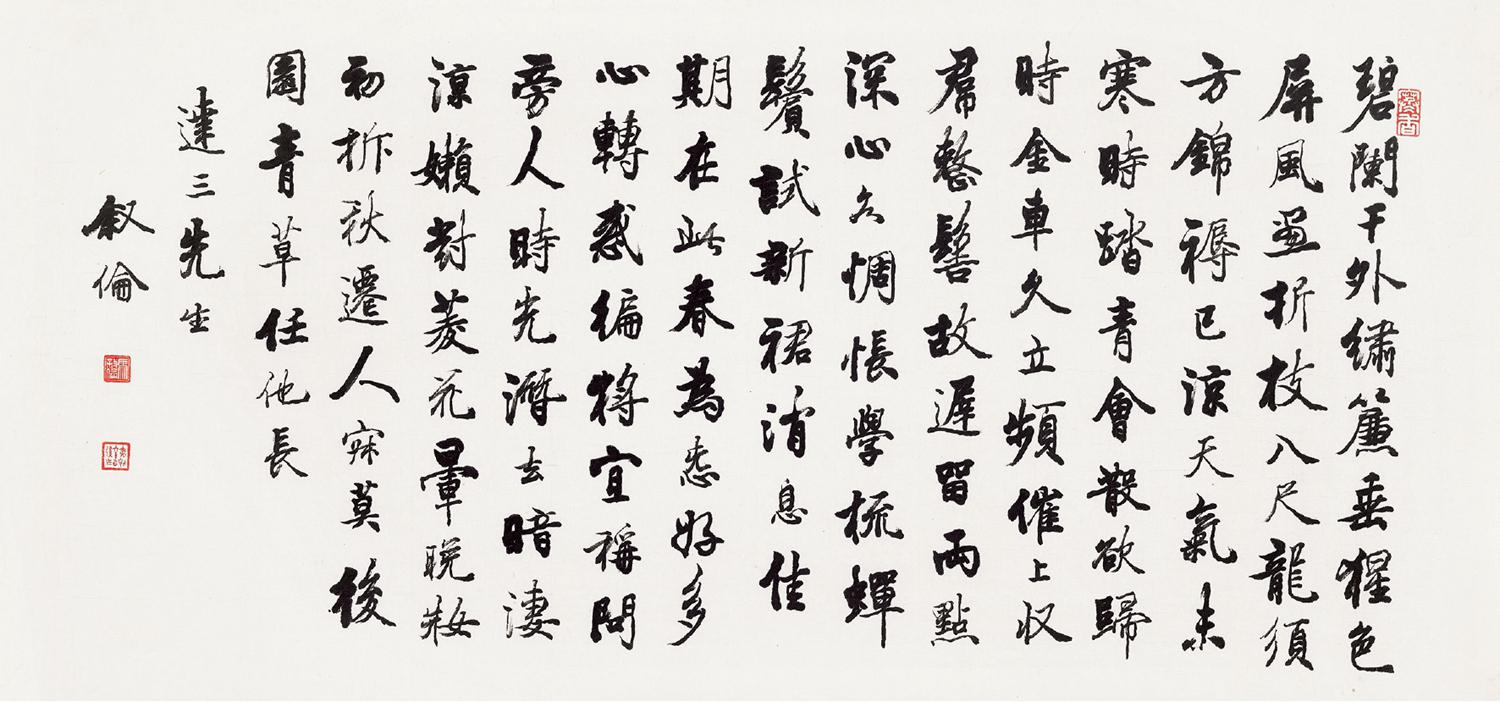 碧闌干外繡簾垂猩色
屏風畫折枝八尺龍須
方錦褥已涼天氣未
寒時踏青會散欲歸
時金車久立頻催上收
帬整髻故遲留兩點
深心各惆悵學梳蟬
鬢試新裙消息佳
期在此春為㤅好多
心轉惑徧將宜稱問
旁人時光潛去暗淒
涼嬾對菱花暈晚妝
初拆秋遷人寂莫後
園青草任他長
達三先生
叙倫